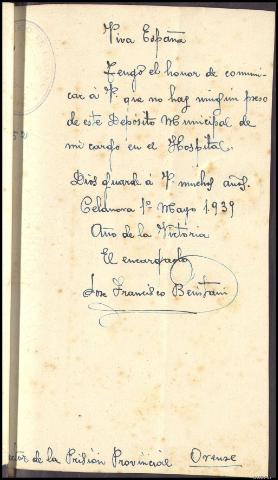 Viva España
Tengo el honor de comuni-
car á V. que no hay ningún preso
de este Depósito Municipal de
mi cargo en el Hospital.
Dios guarde á V. muchos años.
Celanova 1º Mayo 1.939
Año de la Victoria
El encargado
Jose Francisco
ctor de la Prisión Provincial Orense